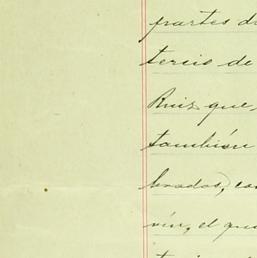 partes d
tercio de
Ruiz que,
también
brados, con
vín, el que